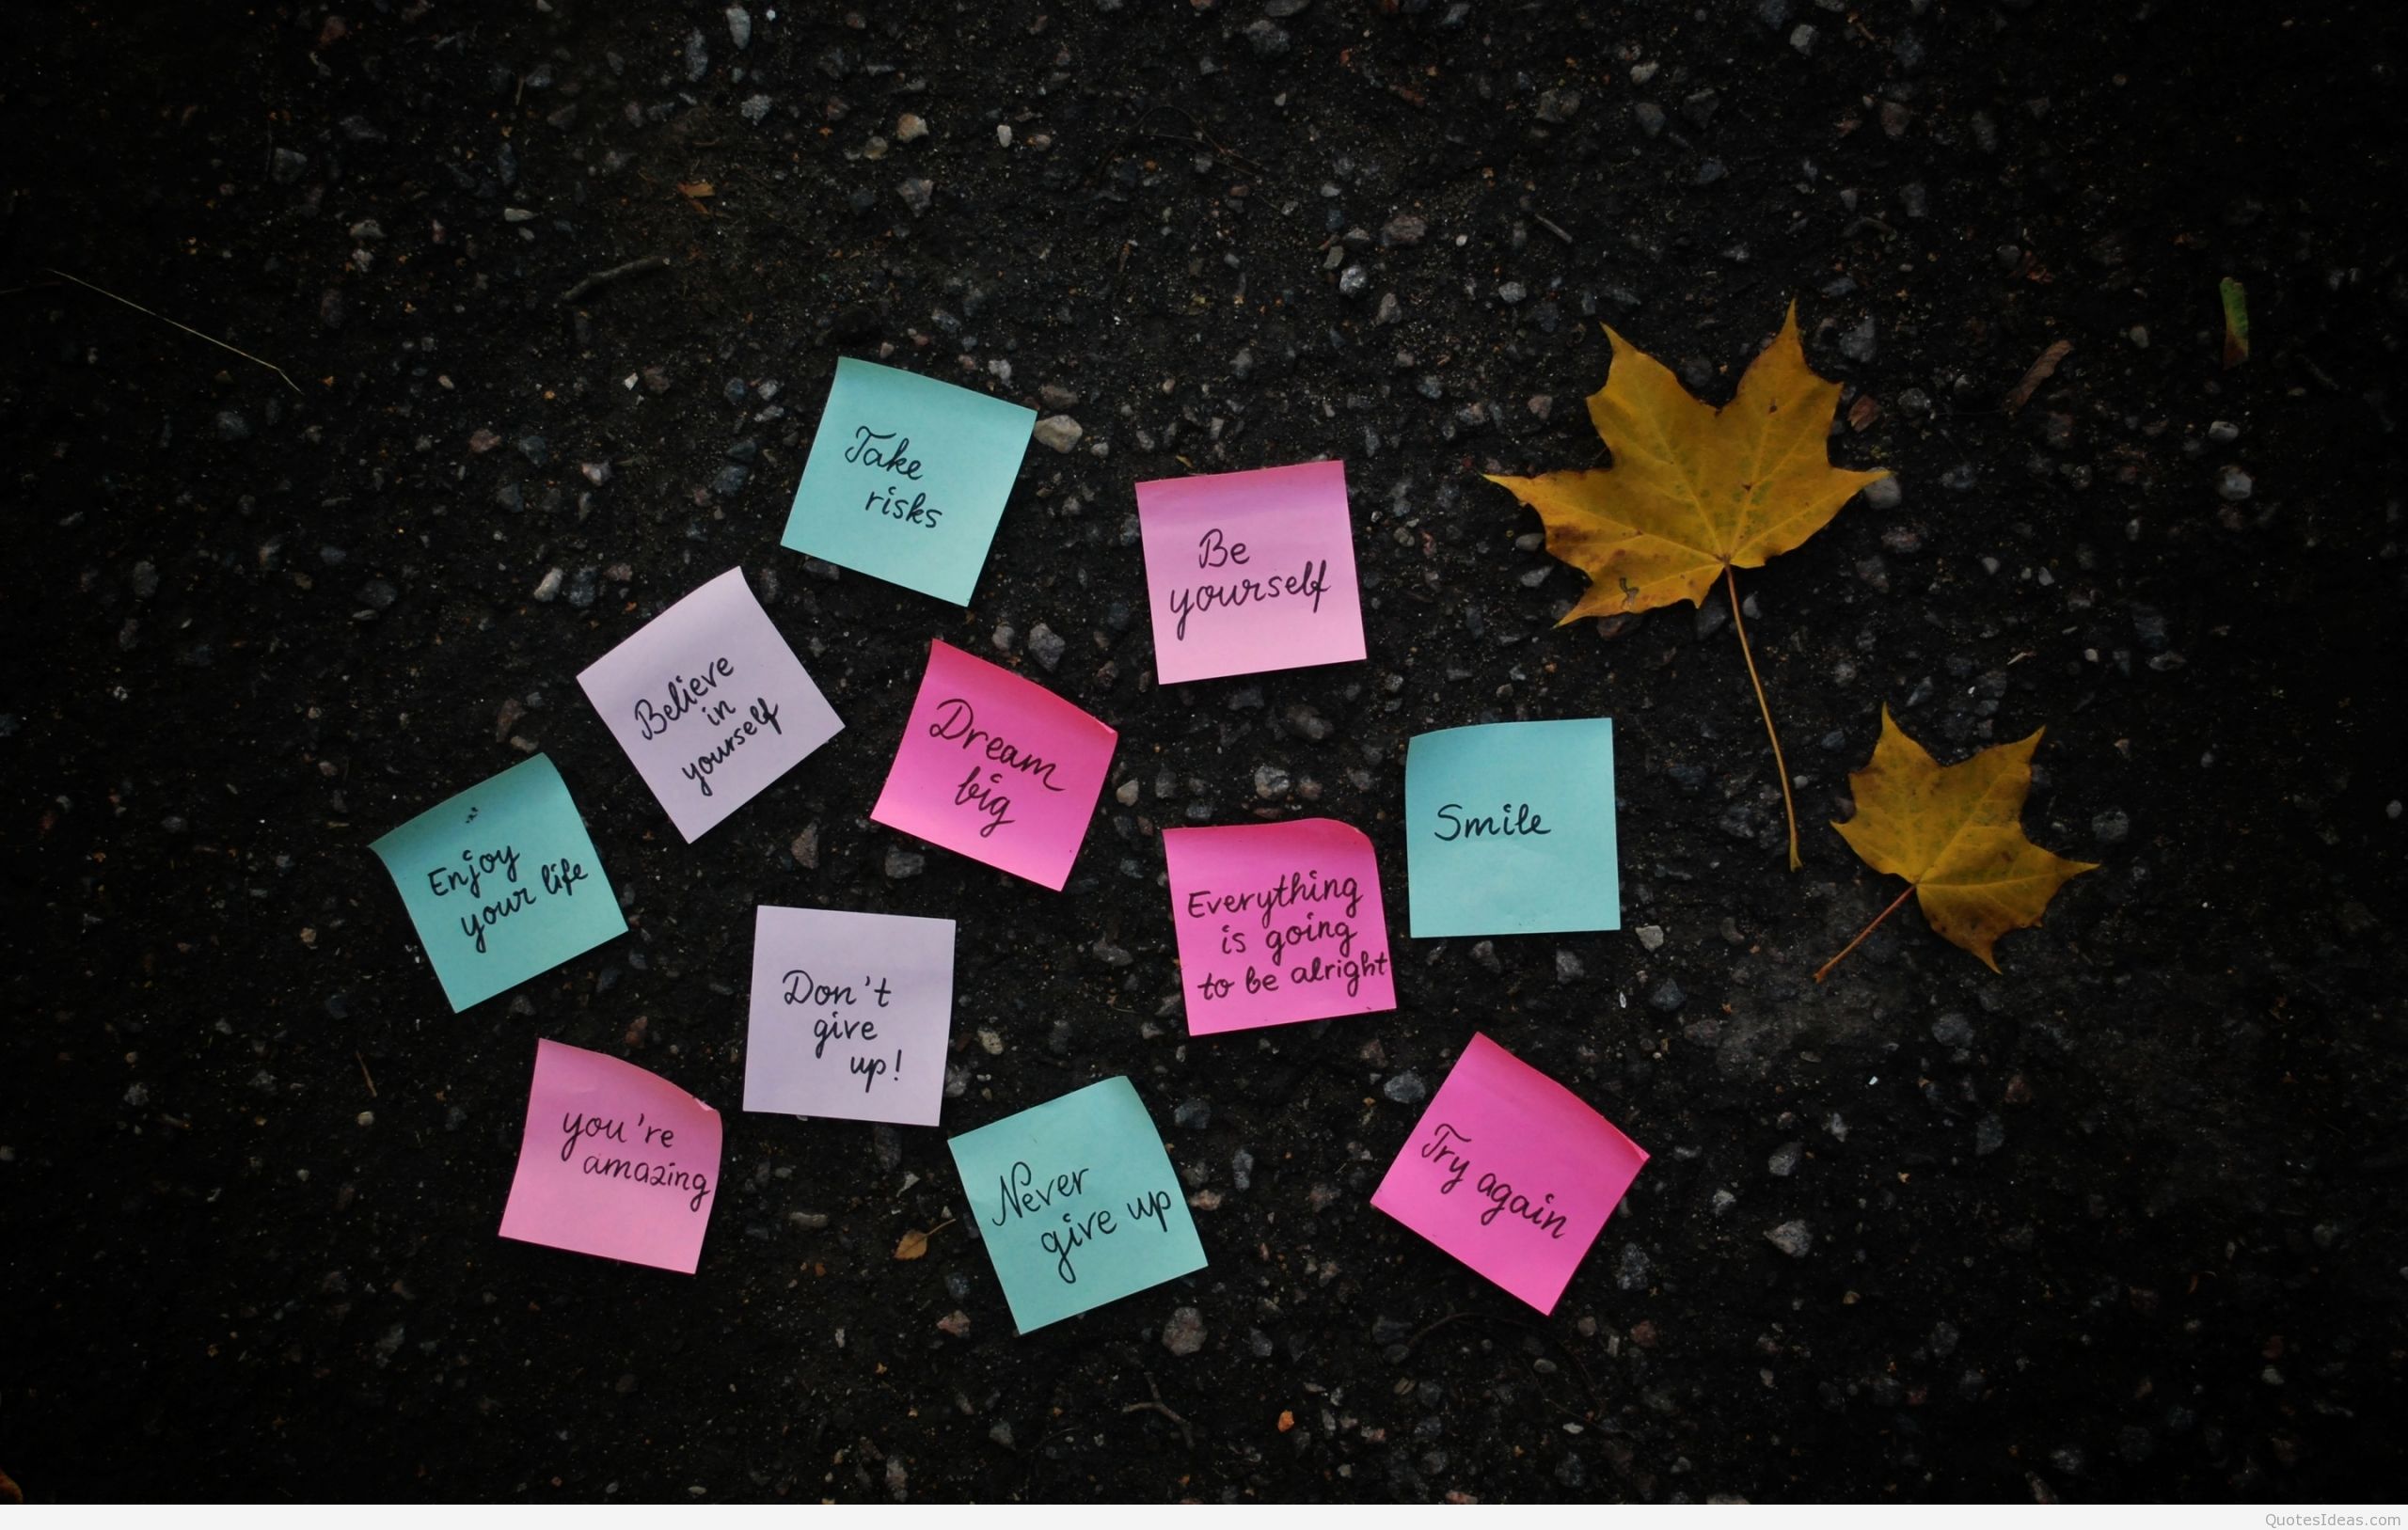 Take
risks
Be
yourself
Believe
in
yourself
Dream
big
Smile
Enjoy
your life
Everything
is going
to be alright
Don't
give
up!
you're
amazing
Never
give up
Try again
QuotesIdeas.com